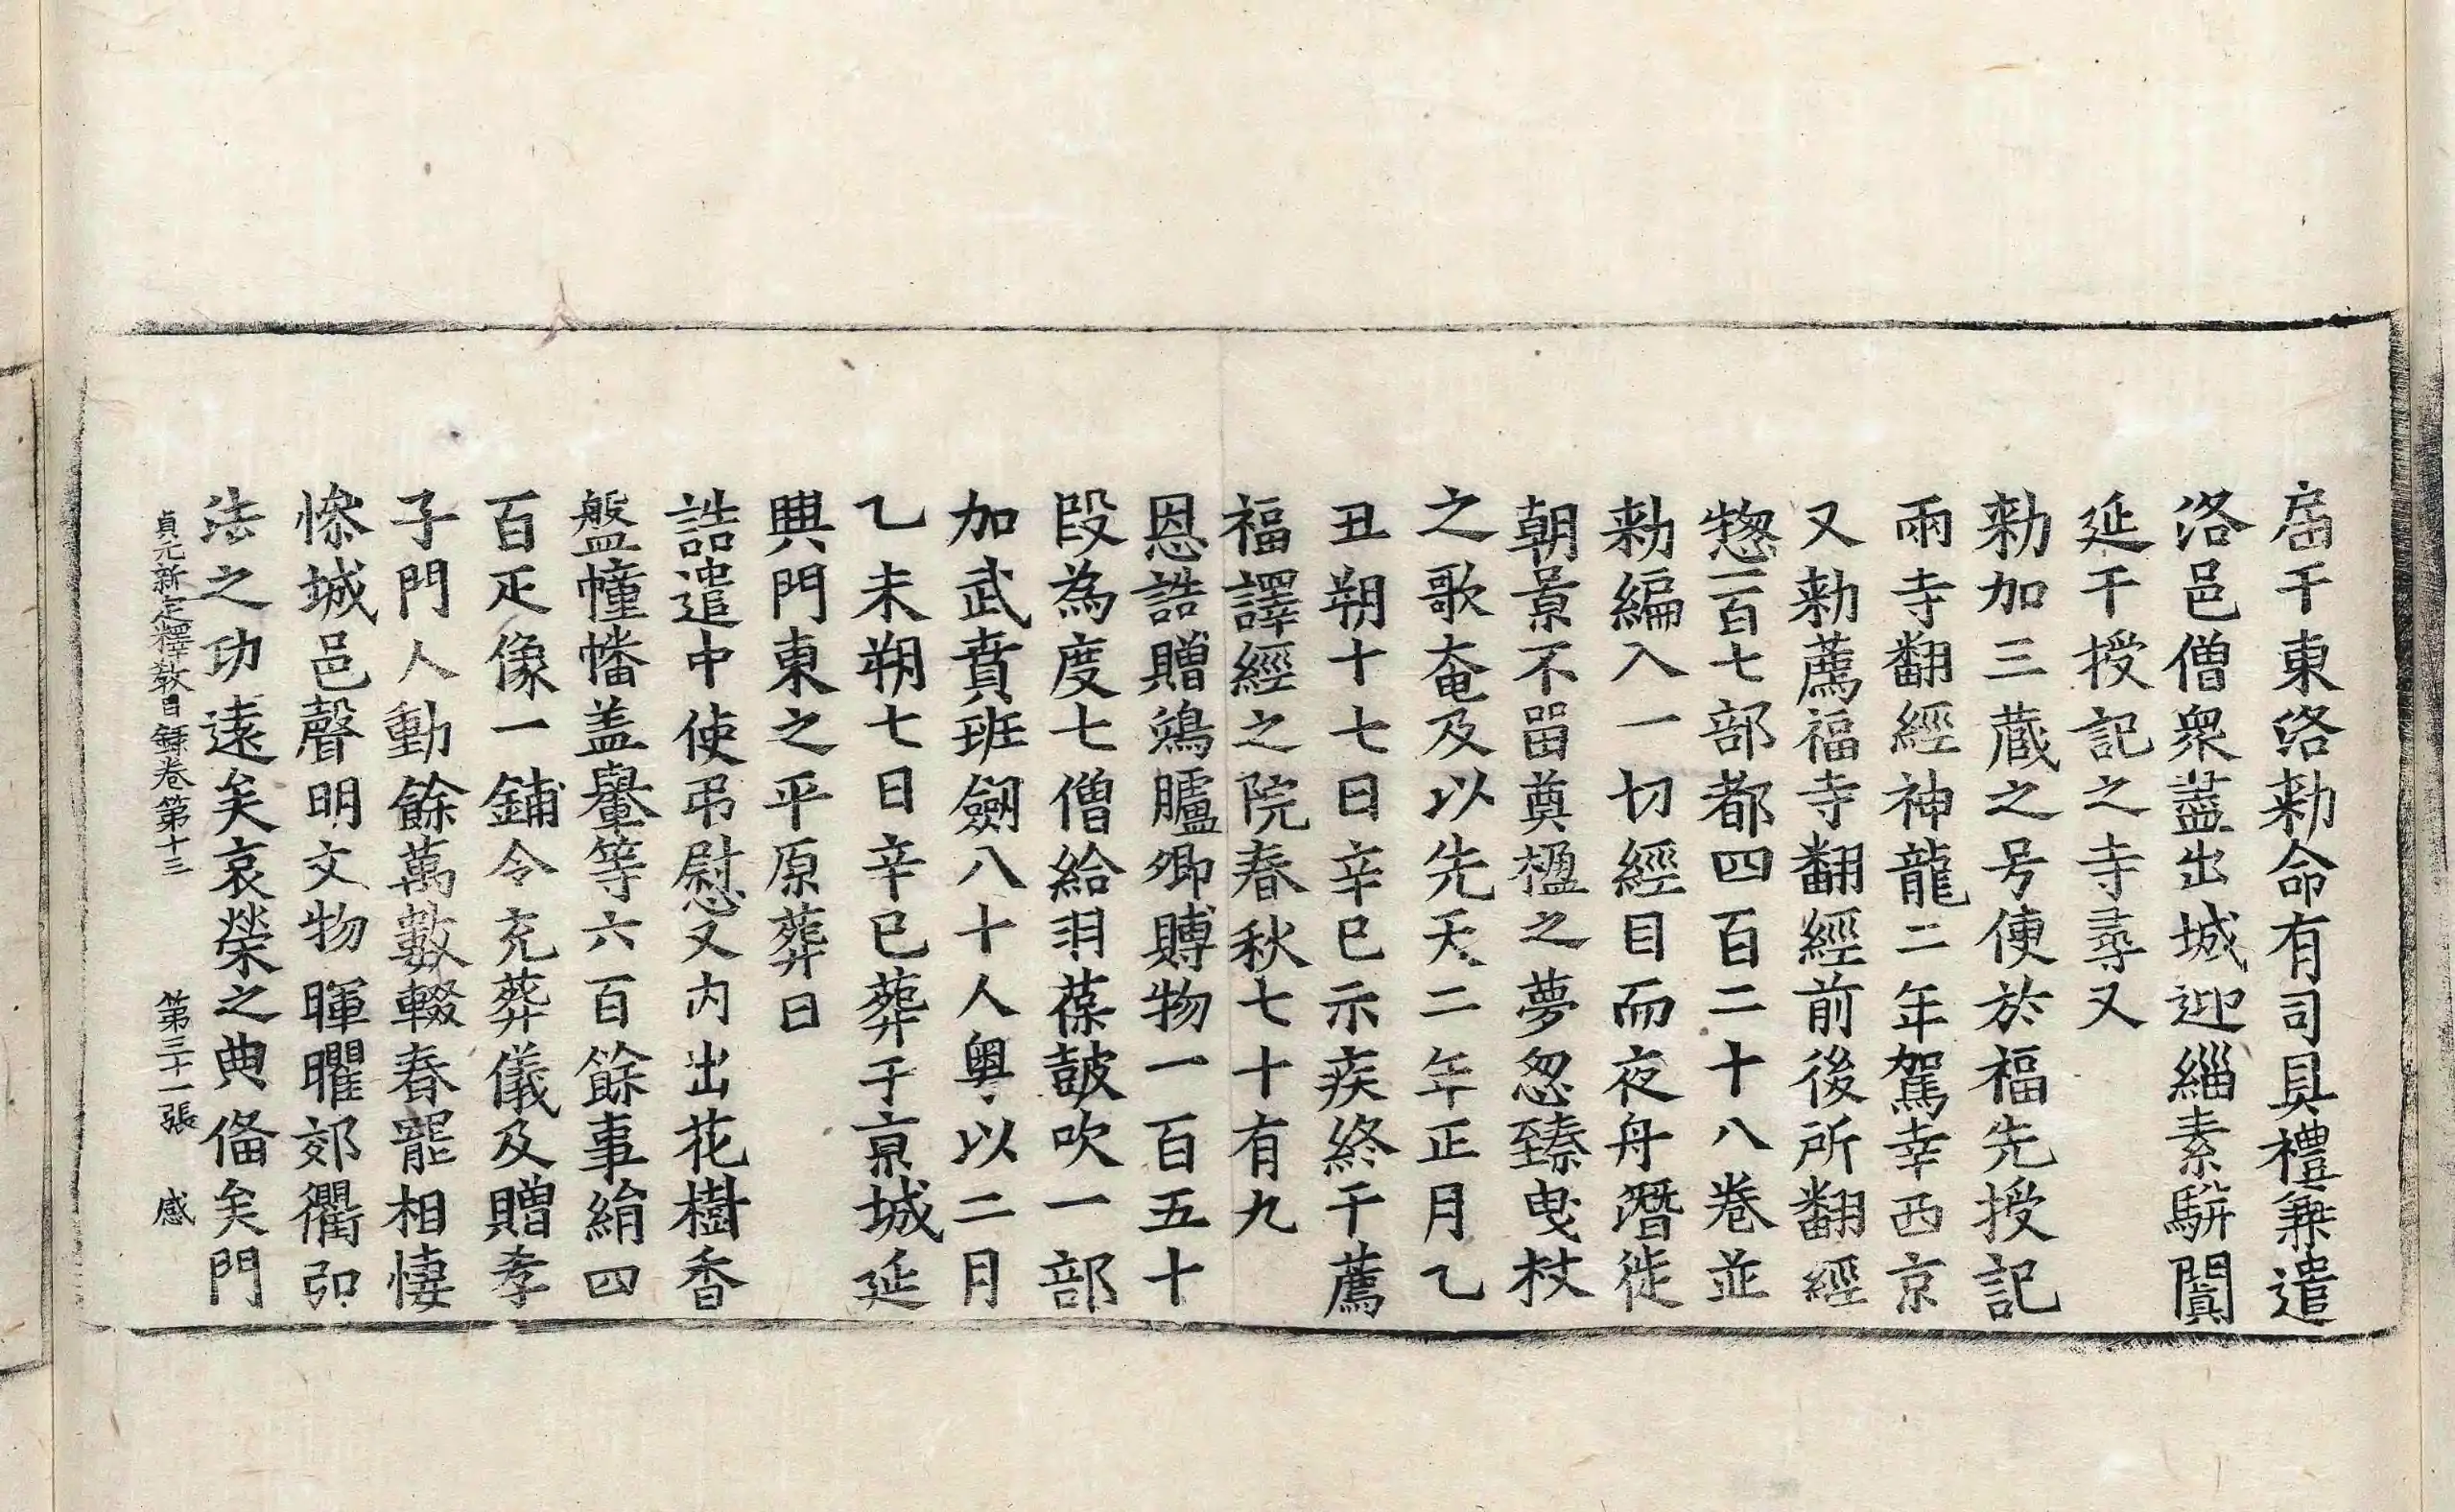 届于東洛勑命有司具禮兼遣
洛邑僧衆盡出城迎緇素駢闐
延于授記之寺尋又
勑加三蔵之号使於福先授記
兩寺翻經神龍二年駕幸西京
又勑薦福寺翻經前後所翻經
惣一百七部都四百二十八巻並
勑編入一切經目而夜舟潛徙
朝景不畱奠楹之夢忽臻曳杖
之歌奄及以先天二年正月乙
丑朔十七日辛巳示疾終于薦
福譯經之院春秋七十有九
恩誥贈鴻臚卿賻物一百五十
段為度七僧給羽葆皷吹一部
加武賁班劒八十人粤以二月
乙未朔七日辛巳葬于京城延
興門東之平原葬日
誥遣中使弔慰又内出花樹香
盤幢幡盖轝等六百餘事絹四
百疋像一鋪令充葬儀及贈孝
子門人動餘萬數輟舂罷相悽
慘城邑聲明文物暉曜郊衢弘
法之功遠矣哀榮之典俻矣門
貞元新定釋教目録巻第十三 第三十一張 感